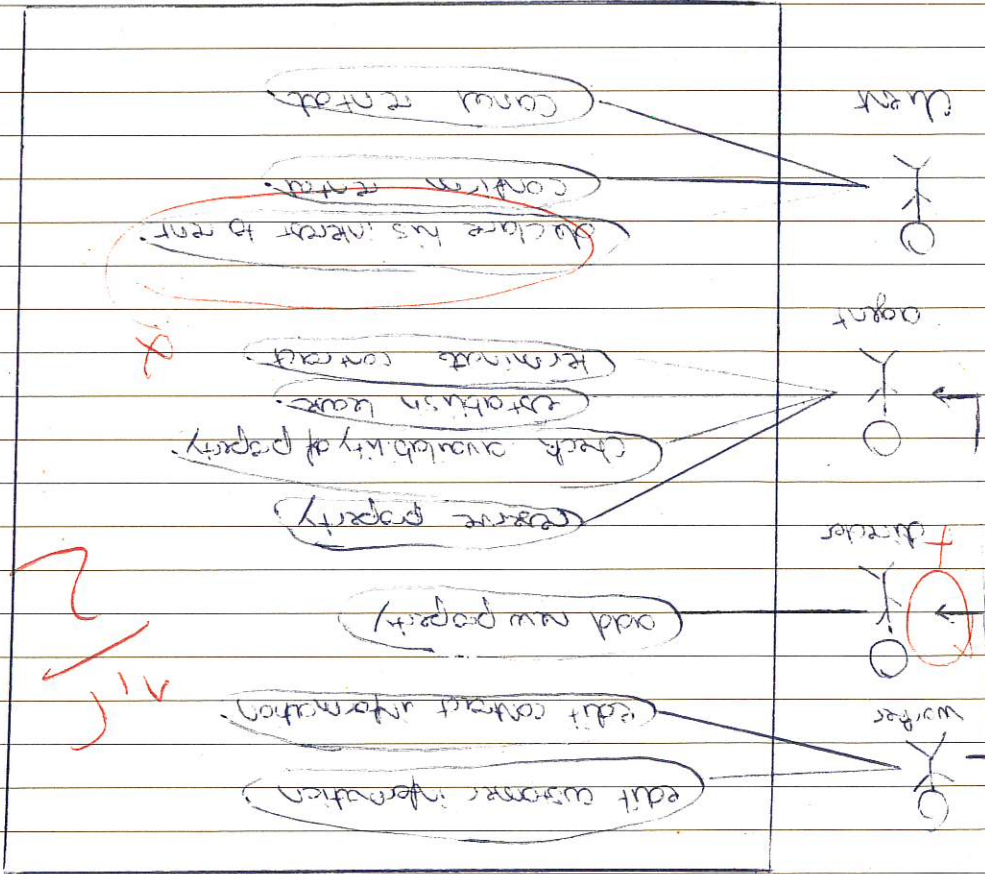 edit customer information
worker
edit contract information.
add new property
director
reserve property
check availability of property.
establish lease.
terminate contract.
agent
declare his interest to rent.
confirm rental.
cancel rental.
client